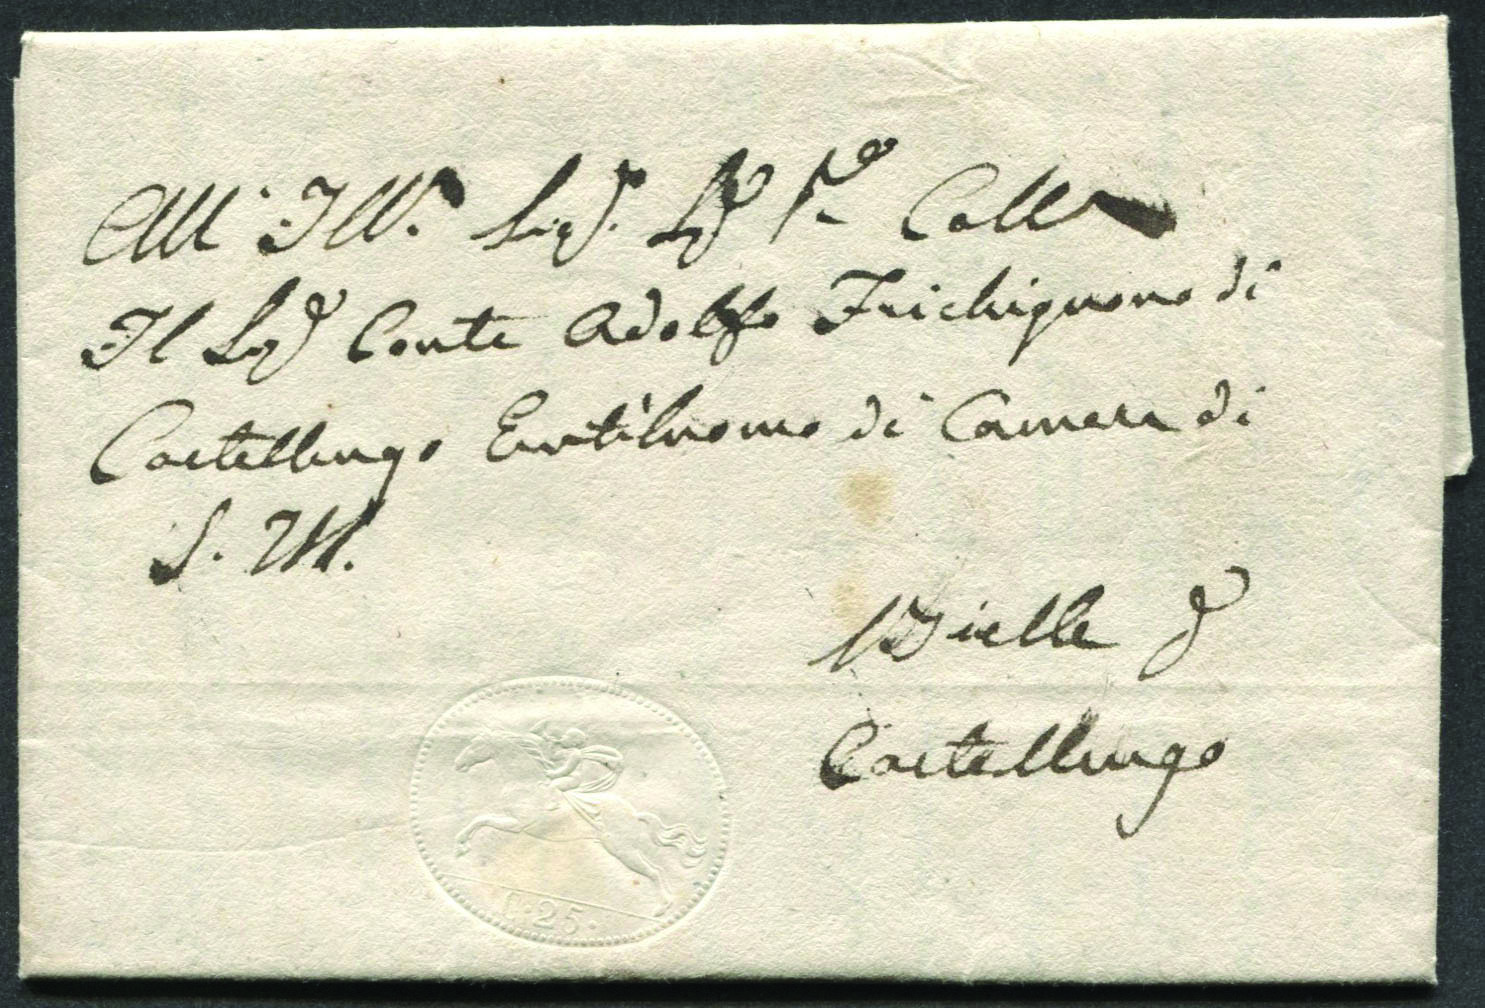 All' Ill.mo Sig.r Sig.r P.ne Coll.mo
Il Sig.r Conte Adolfo Frichignono di
Castellengo Gentiluomo di Camera di
S. M.
Bielle p
Castellengo
C. 25.